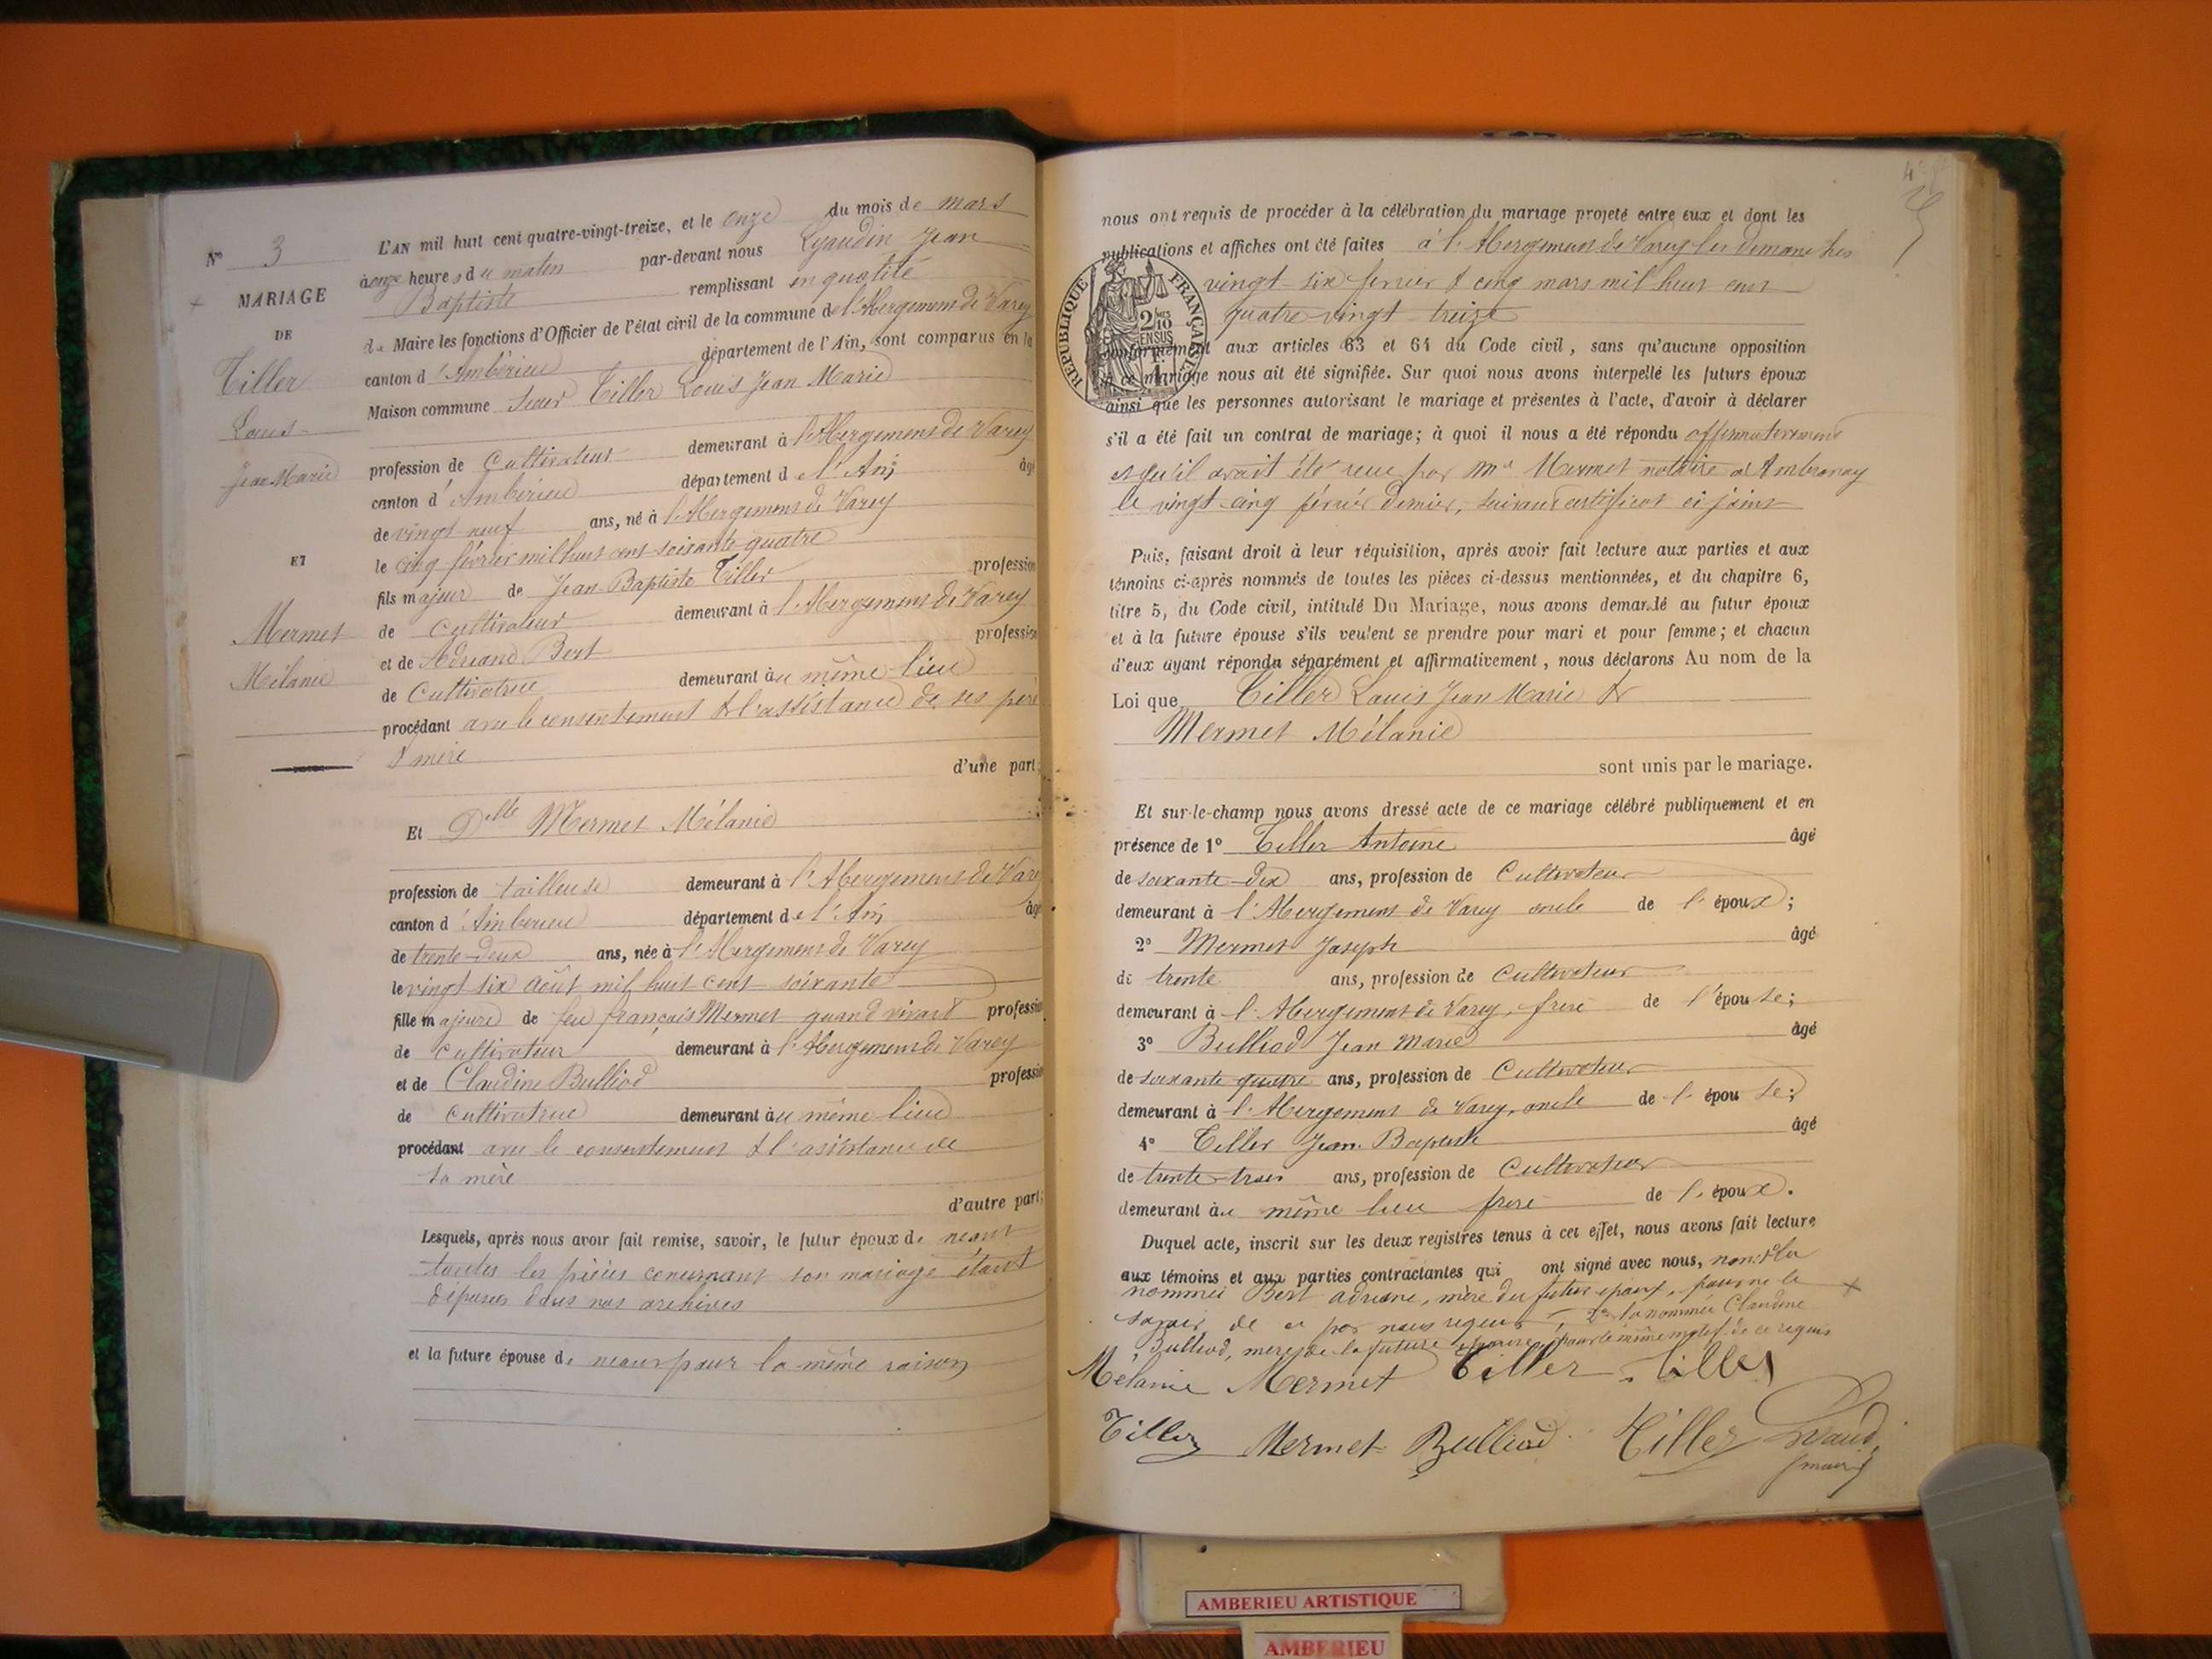 N° 3
MARIAGE
DE
Tiller
Louis
Jean Marie
ET
Mermet
Mélanie
L'AN mil huit cent quatre-vingt-treize, et le onze du mois de mars
à onze heures du matin par-devant nous Lyaudin Jean
Baptiste remplissant en qualité
de Maire les fonctions d'Officier de l'état civil de la commune de l'Abergement de Varey
canton d'Ambérieu département de l'Ain, sont comparus en la
Maison commune Sieur Tiller Louis Jean Marie
profession de Cultivateur demeurant à l'Abergement de Varey
canton d'Ambérieu département de l'Ain, âgé
de vingt neuf ans, né à l'Abergement de Varey
le cinq février mil huit cent soixante quatre
fils majeur de Jean Baptiste Tiller profession
de Cultivateur demeurant à l'Abergement de Varey
et de Adriane Bert profession
de Cultivatrice demeurant au même lieu
procédant avec le consentement & l'assistance de ses père
& mère
d'une part;
Et Dlle Mermet Mélanie
profession de tailleuse demeurant à l'Abergement de Var
canton d'Ambérieu département de l'Ain, âgé
de trente-deux ans, née à l'Abergement de Varey
le vingt six août mil huit cent soixante
fille majeure de feu françois Mermet quand vivait profession
de Cultivateur demeurant à l'Abergement de Varey
et de Claudine Bulliod profession
de Cultivatrice demeurant au même lieu
procédant avec le consentement & l'assistance de
sa mère
d'autre part;
Lesquels, après nous avoir fait remise, savoir, le futur époux de néant
toutes les pièces concernant son mariage étant
déposées dans nos archives
et la future épouse de néant pour la même raison
nous ont requis de procéder à la célébration du mariage projeté entre eux et dont les
publications et affiches ont été faites à l'Abergement de Varey les dimanches
vingt-six février & cinq mars mil huit cent
quatre-vingt-treize
RÉPUBLIQUE FRANÇAISE
2/10 EN SUS
conformément aux articles 63 et 64 du Code civil, sans qu'aucune opposition
à ce mariage nous ait été signifiée. Sur quoi nous avons interpellé les futurs époux
ainsi que les personnes autorisant le mariage et présentes à l'acte, d'avoir à déclarer
s'il a été fait un contrat de mariage; à quoi il nous a été répondu affirmativement
et qu'il avait été reçu par Me Mermet notaire à Ambronay
le vingt-cinq février dernier, suivant certificat ci joint
Puis, faisant droit à leur réquisition, après avoir fait lecture aux parties et aux
témoins ci-après nommés de toutes les pièces ci-dessus mentionnées, et du chapitre 6,
titre 5, du Code civil, intitulé Du Mariage, nous avons demandé au futur époux
et à la future épouse s'ils veulent se prendre pour mari et pour femme; et chacun
d'eux ayant répondu séparément et affirmativement, nous déclarons Au nom de la
Loi que Tiller Louis Jean Marie &
Mermet Mélanie
sont unis par le mariage.
Et sur-le-champ nous avons dressé acte de ce mariage célébré publiquement et en
présence de 1° Tiller Antoine âgé
de soixante-dix ans, profession de Cultivateur
demeurant à l'Abergement de Varey oncle de l'époux;
2° Mermet Joseph âgé
de trente ans, profession de Cultivateur
demeurant à l'Abergement de Varey, frère de l'épouse;
3° Bulliod Jean Marie âgé
de soixante quatre ans, profession de Cultivateur
demeurant à l'Abergement de Varey, oncle de l'épouse;
4° Tiller Jean Baptiste âgé
de trente-trois ans, profession de Cultivateur
demeurant au même lieu frère de l'époux.
Duquel acte, inscrit sur les deux registres tenus à cet effet, nous avons fait lecture
aux témoins et aux parties contractantes qui ont signé avec nous, non: 1° la
nommée Bert adriane, mère du futur époux, pour ne le
savoir de ce par nous requis, 2° la nommée Claudine
Bulliod, mère de la future épouse, pour le même motif de ce requis
Mélanie Mermet Tiller Tiller
Tiller Mermet Bulliod Tiller
maire
AMBERIEU ARTISTIQUE
AMBERIEU